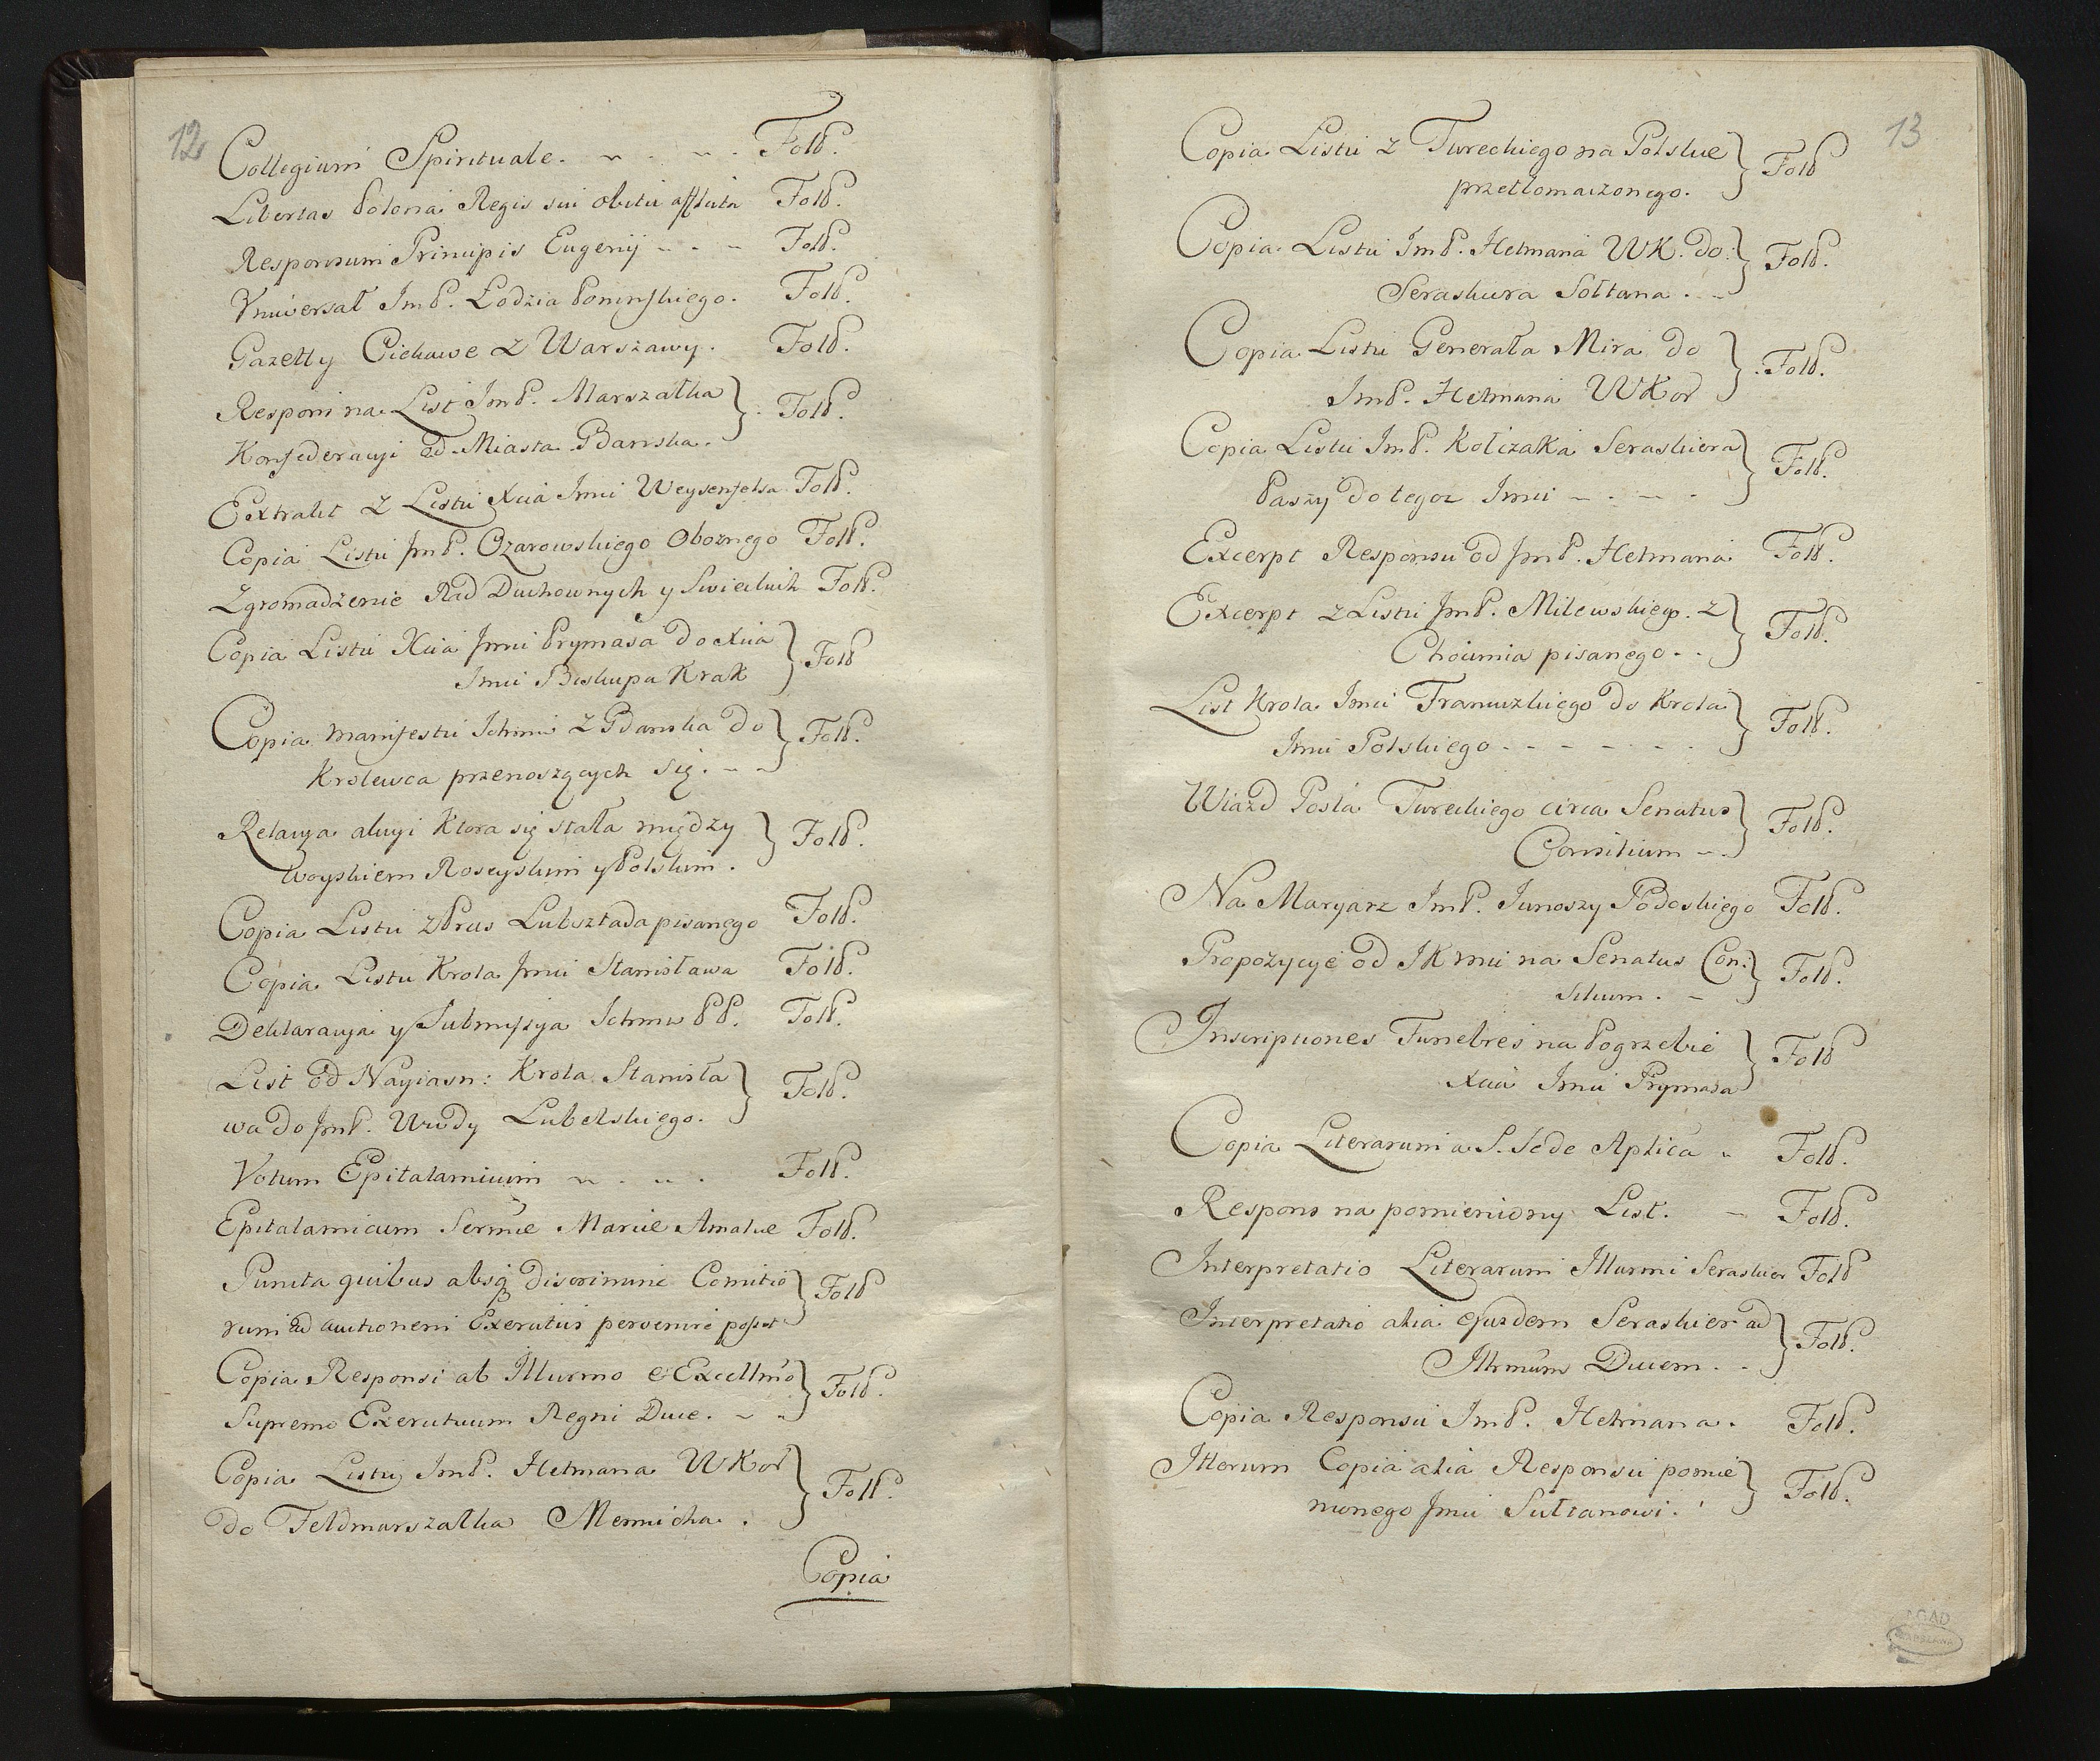 12
Collegium Spirituale. Fol.
Libertas Polona Regis sui obitu afflicta Fol.
Responsum Principis Eugenij Fol.
Vniversał ImP. Łodzia Poninskiego. Fol.
Gazetty Ciekawe z Warszawy. Fol.
Respons na List ImP. Marszałka
Konfederacyi od Miasta Gdanska. Fol.
Extrakt z Listu Xcia Imci Weysenfelsa Fol.
Copia Listu JmP. Ozarowskiego Oboznego Fol.
Zgromadzenie Rad Duchownych y Swieckich Fol.
Copia Listu Xcia Jmci Prymasa do Xcia
Imci Biskupa Krak Fol
Copia manifestu Ichmci z Gdanska do
Krolewca przenoszących się. Fol.
Relacya akcyi Ktora się stała między
Woyskiem Roseyskim y Polskim. Fol.
Copia Listu z Prus Lubsztada pisanego Fol.
Copia Listu Krola Jmci Stanisława Fol.
Deklaracyja y Submissya Ichmw PP. Fol.
List od Nayiasn: Krola Stanisła
wa do JmP. Wwdy Lubelskiego. Fol.
Votum Epitalamium Fol.
Epitalamicum Sermæ Mariæ Amaliæ Fol.
Puncta quibus absq discrimine Comitio
rum ad auctionem Exercitus pervenire posset Fol
Copia Responsi ab Illusmo & Excellmo
Supremo Exercituum Regni Duce. Fol.
Copia Listu ImP. Hetmana WKor
do Feldmarszałka Mennicha. Fol.
Copia
13
Copia Listu z Tureckiego na Polskie
przetlomaczonego. Fol
Copia Listu ImP. Hetmana WK. do
Seraskiera Sołtana. Fol.
Copia Listu Generała Mira do
ImP. Hetmana WKor Fol.
Copia Listu ImP. Kołczaka Seraskiera
Paszy do tegoz Imci Fol.
Excerpt Responsu od JmP. Hetmana Fol.
Excerpt z Listu JmP. Milewskiego z
Chocimia pisanego Fol.
List Krola Imci Francuzkiego do Krola
Imci Polskiego Fol.
Wiazd Posła Tureckiego circa Senatus
Consilium Fol.
Na Maryarz ImP. Iunoszy Podoskiego Fol.
Propozycye od JKmci na Senatus Con:
silium. Fol.
Inscriptiones Funebres na Pogrzebie
Xcia Imci Prymasa Fol
Copia Literarum a S. Sede Aplica Fol.
Respons na pomieniony List. Fol.
Interpretatio Literarum Illusmi Seraskier Fol
Interpretatio alia ejusdem Seraskier ad
Illmum Ducem. Fol.
Copia Responsu ImP. Hetmana. Fol.
Iterum Copia alia Responsu pomie
nionego Jmci Sułtanowi. Fol.
AGAD